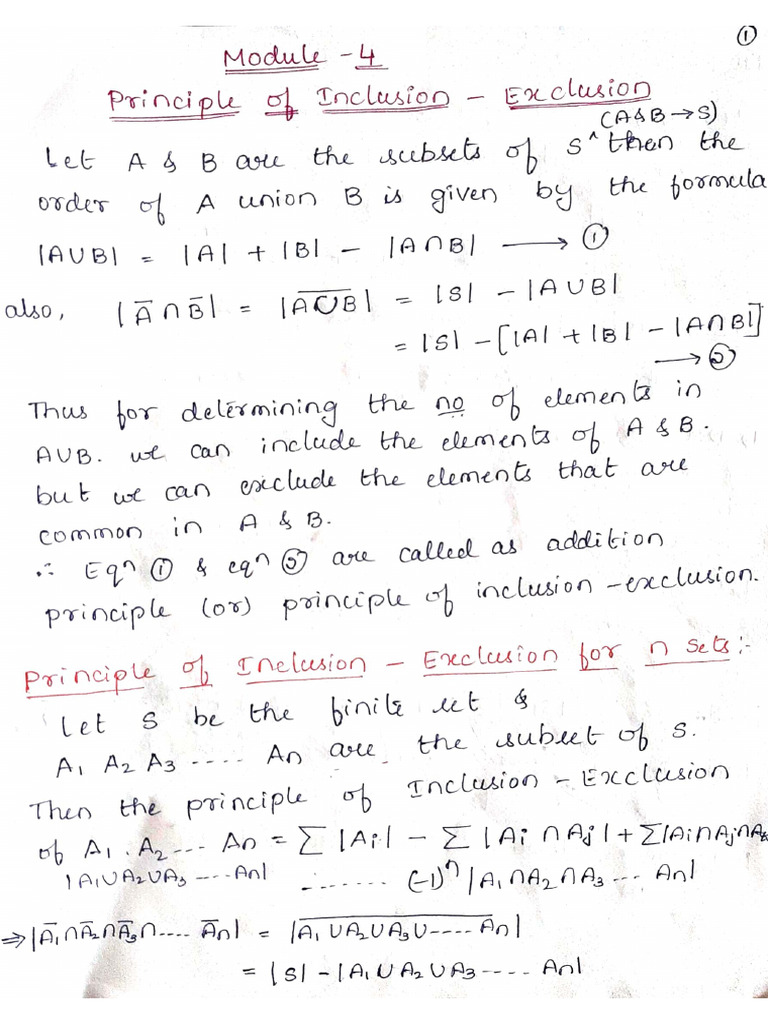 ①
Module - 4
Principle of Inclusion - Exclusion
(A & B → S)
Let A & B are the subsets of S ^ then the
order of A union B is given by the formula
|A∪B| = |A| + |B| - |A∩B| → ①
also, |A̅ ∩ B̅| = |A̅∪̅B̅| = |S| - |A∪B|
= |S| - [|A| + |B| - |A∩B|]
→ ②
Thus for determining the no of elements in
A∪B. we can include the elements of A & B.
but we can exclude the elements that are
common in A & B.
∴ Eqⁿ ① & eqⁿ ② are called as addition
principle (or) principle of inclusion - exclusion.
Principle of Inclusion - Exclusion for n sets:-
Let S be the finite set &
A₁ A₂ A₃ ---- An are the subset of S.
Then the principle of Inclusion - Exclusion
of A₁. A₂ --- An = Σ |Ai| - Σ |Ai ∩ Aj| + Σ|Ai∩Aj∩Ak
|A₁∪A₂∪A₃ ----- An| ------- (-1)ⁿ |A₁∩A₂∩A₃ --- An|
⇒ |A̅₁∩A̅₂∩A̅₃∩---- A̅n| = |A̅₁̅∪̅A̅₂̅∪̅A̅₃̅∪̅-̅-̅-̅-̅A̅n̅|
= |S| - |A₁∪A₂∪A₃ ---- An|